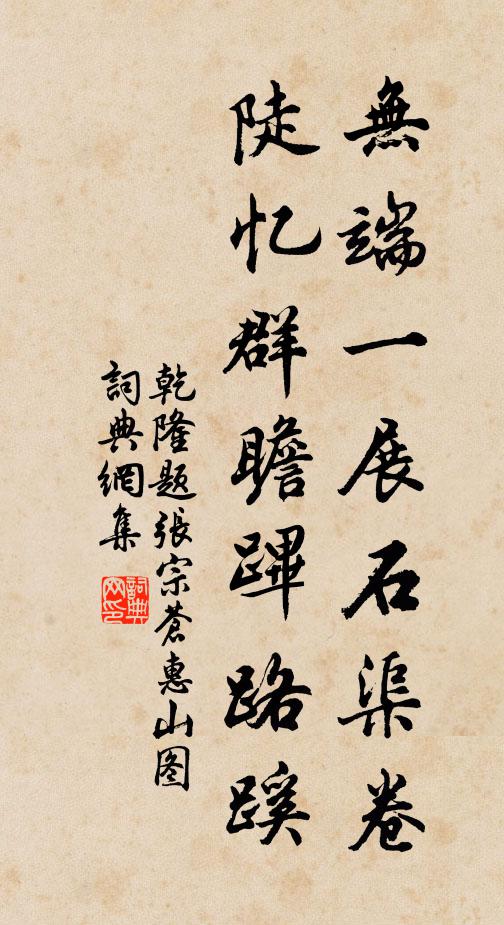 無端一展石渠卷
陡忆群瞻蹕路蹊
乾隆题張宗蒼惠山图
詞典網集
詞典网印